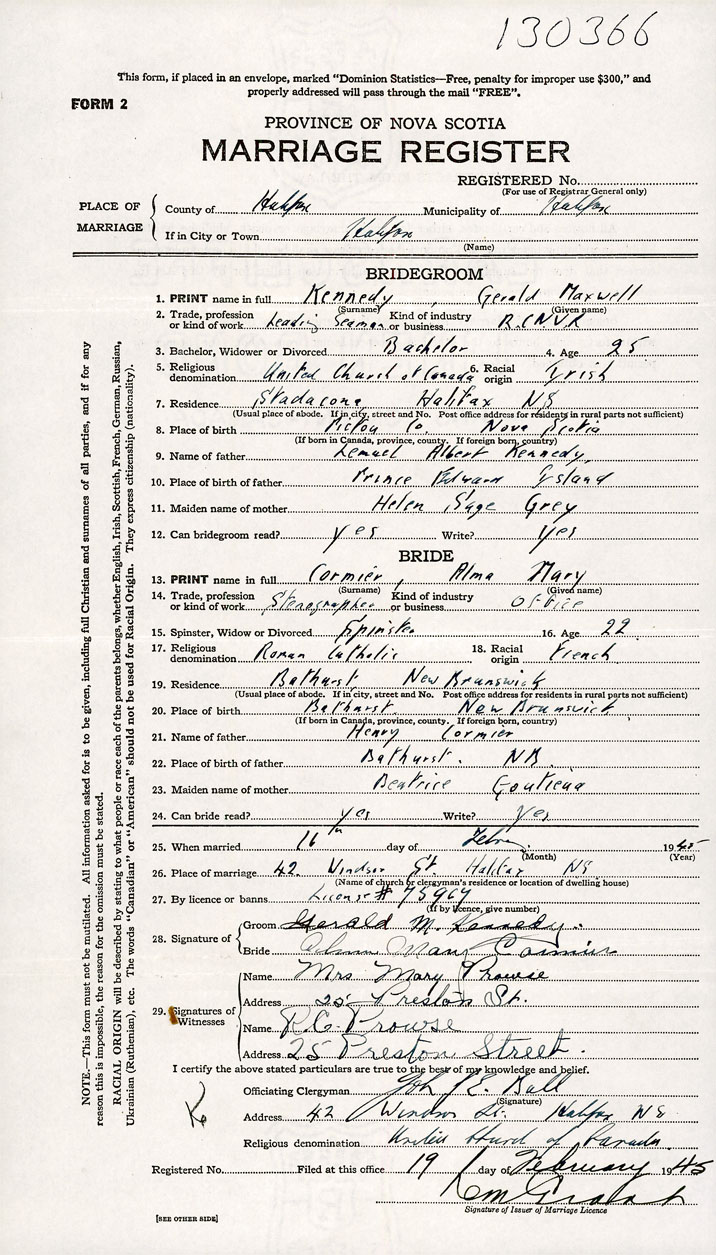 130366
This form, if placed in an envelope, marked "Dominion Statistics—Free, penalty for improper use $300," and
properly addressed will pass through the mail "FREE".
FORM 2
PROVINCE OF NOVA SCOTIA
MARRIAGE REGISTER
REGISTERED No.
(For use of Registrar General only)
PLACE OF MARRIAGE
County of Halifax Municipality of Halifax
If in City or Town Halifax
(Name)
BRIDEGROOM
1. PRINT name in full Kennedy, Gerald Maxwell
(Surname) (Given name)
2. Trade, profession or kind of work Leading Seaman Kind of industry or business R.C.N.V.R
3. Bachelor, Widower or Divorced Bachelor 4. Age 25
5. Religious denomination United Church of Canada 6. Racial origin Irish
7. Residence Stadacona Halifax NS
(Usual place of abode. If in city, street and No. Post office address for residents in rural parts not sufficient)
8. Place of birth Pictou Co. Nova Scotia
(If born in Canada, province, county. If foreign born, country)
9. Name of father Lemuel Albert Kennedy
10. Place of birth of father Prince Edward Island
11. Maiden name of mother Helen Sage Grey
12. Can bridegroom read? yes Write? yes
BRIDE
13. PRINT name in full Cormier, Alma Mary
(Surname) (Given name)
14. Trade, profession or kind of work Stenographer Kind of industry or business Office
15. Spinster, Widow or Divorced Spinster 16. Age 22
17. Religious denomination Roman Catholic 18. Racial origin French
19. Residence Bathurst New Brunswick
(Usual place of abode. If in city, street and No. Post office address for residents in rural parts not sufficient)
20. Place of birth Bathurst New Brunswick
(If born in Canada, province, county. If foreign born, country)
21. Name of father Henry Cormier
22. Place of birth of father Bathurst. NB
23. Maiden name of mother Beatrice
24. Can bride read? yes Write? yes
25. When married 16th day of Febry. 1945
(Month) (Year)
26. Place of marriage 42 Windsor St. Halifax NS
(Name of church or clergyman's residence or location of dwelling house)
27. By licence or banns License # 75969
(If by licence, give number)
28. Signature of
Groom Gerald M. Kennedy.
Bride Alma Mary Cormier
29. Signatures of Witnesses
Name Mrs Mary Prowse
Address 25 Preston St.
Name R.C. Prowse
Address 25 Preston Street.
I certify the above stated particulars are true to the best of my knowledge and belief.
Officiating Clergyman
(Signature)
Address 42 Windsor St. Halifax NS
Religious denomination United Church of Canada
Registered No. Filed at this office 19 day of February 1945
Signature of Issuer of Marriage Licence
[SEE OTHER SIDE]
NOTE.—This form must not be mutilated. All information asked for is to be given, including full Christian and surnames of all parties, and if for any
reason this is impossible, the reason for the omission must be stated.
RACIAL ORIGIN will be described by stating to what people or race each of the parents belongs, whether English, Irish, Scottish, French, German, Russian,
Ukrainian (Ruthenian), etc. The words "Canadian" or "American" should not be used for Racial Origin. They express citizenship (nationality).